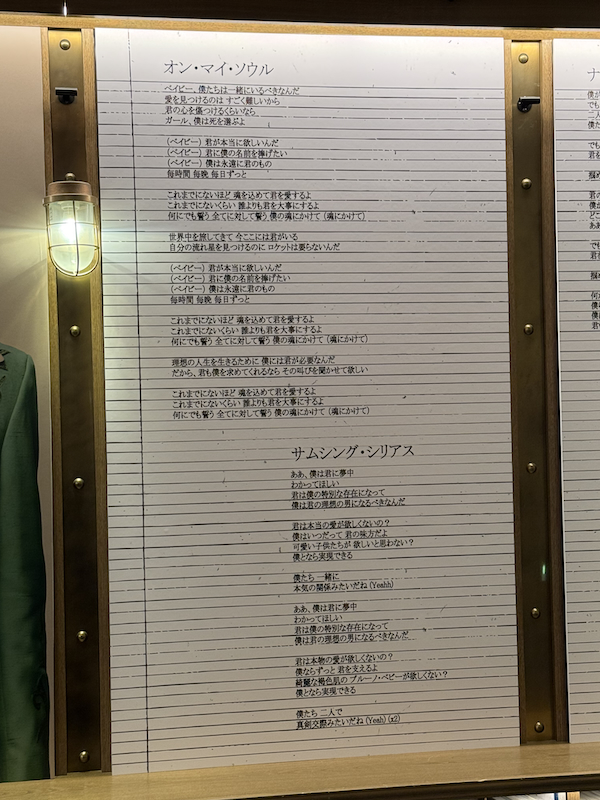 オン・マイ・ソウル
ベイビー、僕たちは一緒にいるべきなんだ
愛を見つけるのは すごく難しいから
君の心を傷つけるくらいなら
ガール、僕は死を選ぶよ
(ベイビー) 君が本当に欲しいんだ
(ベイビー) 君に僕の名前を捧げたい
(ベイビー) 僕は永遠に君のもの
毎時間 毎晩 毎日ずっと
これまでにないほど 魂を込めて君を愛するよ
これまでにないくらい 誰よりも君を大事にするよ
何にでも誓う 全てに対して誓う 僕の魂にかけて (魂にかけて)
世界中を旅してきて 今ここには君がいる
自分の流れ星を見つけるのに ロケットは要らないんだ
(ベイビー) 君が本当に欲しいんだ
(ベイビー) 君に僕の名前を捧げたい
(ベイビー) 僕は永遠に君のもの
毎時間 毎晩 毎日ずっと
これまでにないほど 魂を込めて君を愛するよ
これまでにないくらい 誰よりも君を大事にするよ
何にでも誓う 全てに対して誓う 僕の魂にかけて (魂にかけて)
理想の人生を生きるために 僕には君が必要なんだ
だから、君も僕を求めてくれるなら その叫びを聞かせて欲しい
これまでにないほど 魂を込めて君を愛するよ
これまでにないくらい 誰よりも君を大事にするよ
何にでも誓う 全てに対して誓う 僕の魂にかけて (魂にかけて)
サムシング・シリアス
ああ、僕は君に夢中
わかってほしい
君は僕の特別な存在になって
僕は君の理想の男になるべきなんだ
君は本当の愛が欲しくないの？
僕はいつだって 君の味方だよ
可愛い子供たちが 欲しいと思わない？
僕となら実現できる
僕たち 一緒に
本気の関係みたいだね (Yeahh)
ああ、僕は君に夢中
わかってほしい
君は僕の特別な存在になって
僕は君の理想の男になるべきなんだ
君は本物の愛が欲しくないの？
僕ならずっと 君を支えるよ
綺麗な褐色肌の ブルーノ・ベビーが欲しくない？
僕となら実現できる
僕たち 二人で
真剣交際みたいだね (Yeah) (x2)